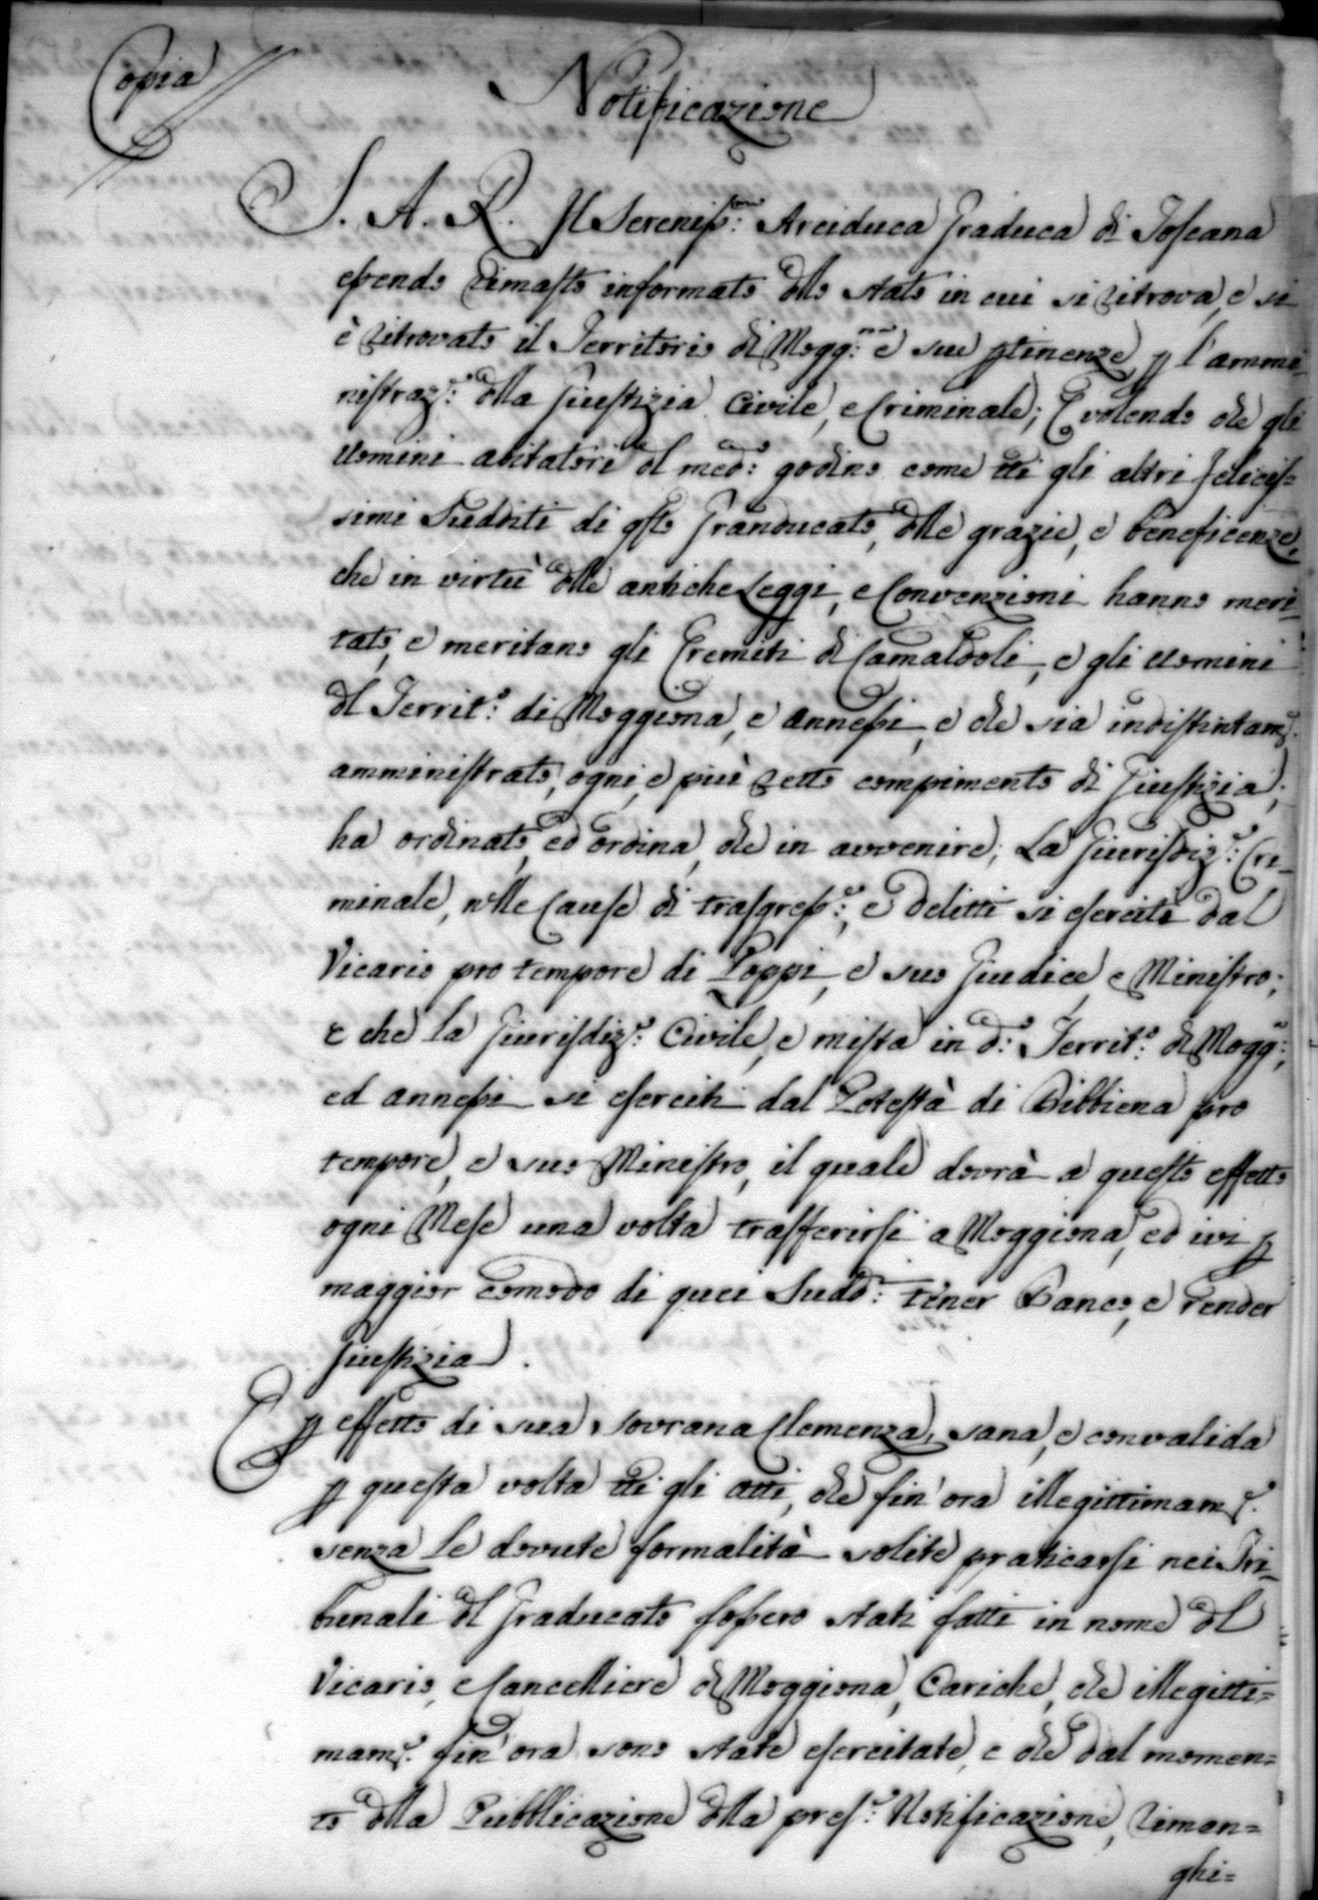 Copia
Notificazione
S. A. R. Il Sereniss.mo: Arciduca Graduca di Toscana
essendo rimasto informato dllo stato in cui si ritrova, e si
è ritrovato il Territorio di Mogg.na: e sue ptinenze p l'ammi-
nistraz.e: dlla Giustizia Civile, e Criminale; E volendo che gli
Uomini abitatori dl med.o: godino come tti gli altri felicis=
simi Sudditi di qsto Granducato, dlle grazie, e beneficenze,
che in virtù dlle antiche Leggi, e Convenzioni hanno meri-
tato, e meritano gli Eremiti di Camaldoli, e gli Uomini
dl Territ.o: di Moggiona, e annessi, e che sia indistintam.e
amministrato, ogni, e più retto compimento di Giustizia;
ha ordinato, ed ordina, che in avvenire; La Giurisdiz.e: Cri-
minale, nlle Cause di trasgress.e:, e Delitti si eserciti dal
Vicario pro tempore di Poppi, e suo Giudice, e Ministro;
e che la Giurisdiz.e: Civile, e mista in d.o: Territ.o: di Mogg.a:,
ed annessi si eserciti dal Potestà di Bibbiena pro
tempore, e suo Ministro, il quale dovrà a questo effetto
ogni Mese una volta trasferirsi a Moggiona, ed ivi p
maggior comodo di quei Sudd.: tener Banco, e render
Giustizia.
E p effetto di sua sovrana Clemenza, sana, e convalida
p questa volta tti gli atti, che fin'ora illegittimam.e
senza le dovute formalità solite praticarsi nei Tri-
bunali dl Graducato fossero stati fatti in nome dl
Vicario, e Cancelliere di Moggiona, Cariche, che illegitti=
mam.e fin'ora sono state esercitate, e che dal momen=
to dlla Pubblicazione dlla pres.e: Notificazione, riman=
ghi=